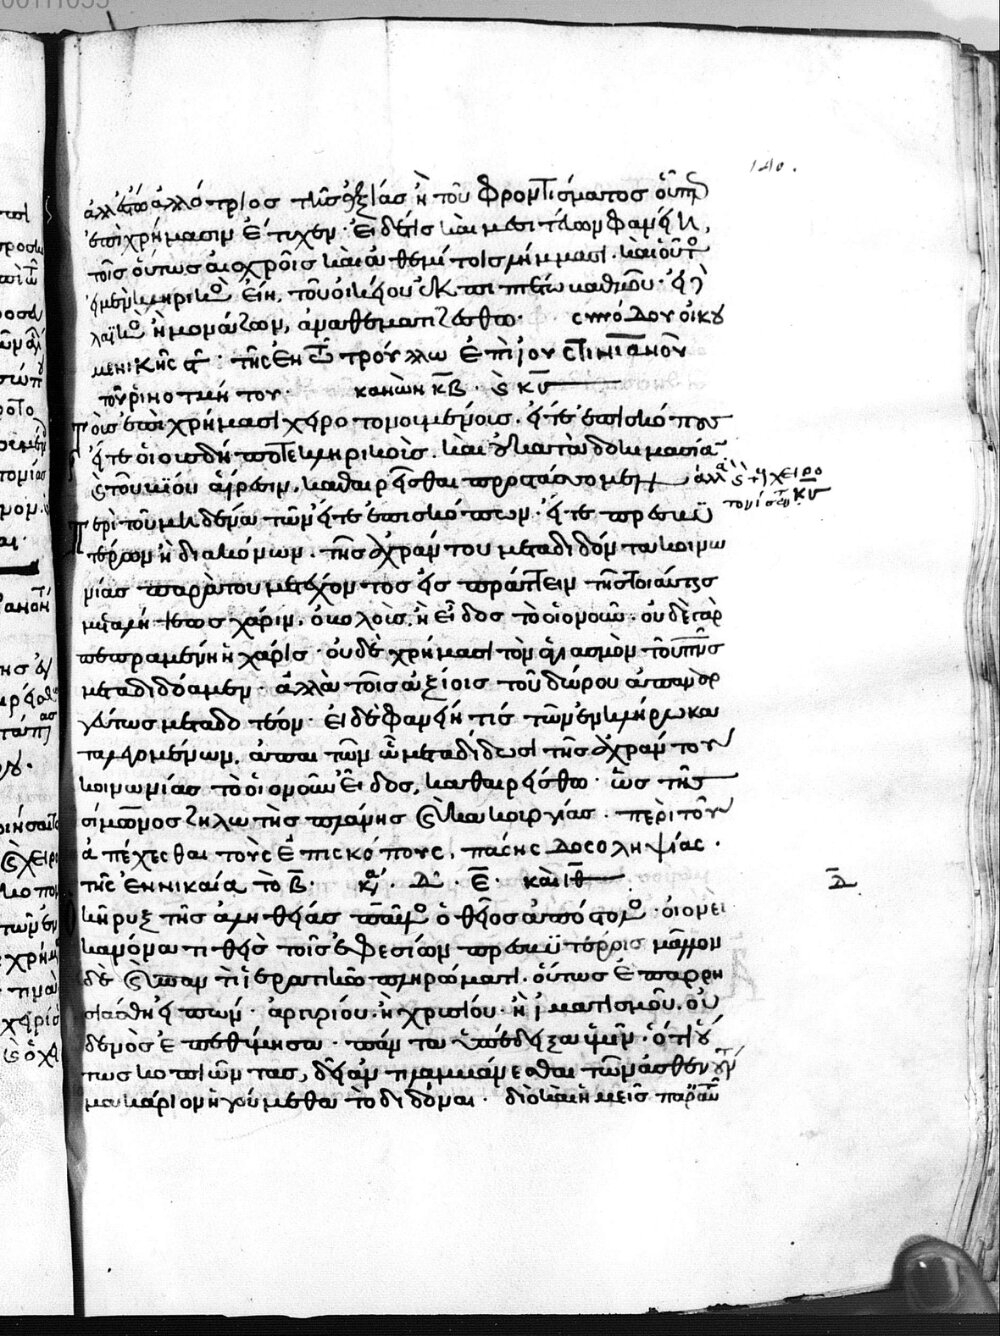 140.
ἀλλ' ἔστω ἀλλότριος τῆς ἀξίας ἢ τοῦ φροντίσματος οὗπερ
ἐπὶ χρήμασιν ἔτυχεν· εἰ δέ τις καὶ μεσιτεύων φανείη,
τοῖς οὕτως αἰσχροῖς καὶ ἀθεμίτοις λήμμασι· καὶ οὗτος
εἰ μὲν κληρικὸς εἴη, τοῦ οἰκείου ἐκπιπτέτω βαθμοῦ· εἰ δὲ
λαϊκὸς ἢ μονάζων, ἀναθεματιζέσθω· συνόδου οἰκου
μενικῆς ϛ· τῆς ἐν τῶ τρούλλω ἐπὶ ἰουστινιανοῦ
τοῦ ρινοτμήτου· κανὼν κβ· κγ
Τοὺς ἐπὶ χρήμασι χειροτονουμένους· εἴτε ἐπισκόπους
εἴτε οἱουσδήποτε κληρικοὺς· καὶ οὐ κατὰ δοκιμασίαν
καὶ τοῦ βίου αἵρεσιν, καθαιρεῖσθαι προστάσσομεν
ἀλλὰ καὶ τοὺς χειρο
τονήσαντας κγ
Περὶ τοῦ μηδένα τῶν εἴτε ἐπισκόπων· εἴτε πρεσβυ
τέρων ἢ διακόνων· τῆς ἀχράντου μεταδιδόντα κοινω
νίας παρὰ τοῦ μετέχοντος εἰσπράττειν τῆς τοιαύτης
μεταλήψεως χάριν, ὀβολοὺς, ἢ εἶδος τὸ οἱονοῦν· οὐδὲ γὰρ
πεπραμένη ἡ χάρις· οὐδὲ χρήμασι τὸν ἁγιασμὸν τοῦ πνς
μεταδιδόαμεν· ἀλλὰ τοῖς ἀξίοις τοῦ δώρου ἀπανουρ
γεύτως μεταδοτέον· εἰ δὲ φανείη τίς τῶν ἐν κλήρω κα
ταλεγομένων, ἀπαιτῶν ὧ μεταδίδωσι τῆς ἀχράντου
κοινωνίας τὸ οἱονοῦν εἶδος, καθαιρείσθω· ὡς τῆς
σίμωνος ζηλωτὴς πλάνης καὶ κακουργίας· περὶ τοῦ
ἀπέχεσθαι τοὺς ἐπισκόπους, πάσης δοσοληψίας·
τῆς ἐν νικαία τὸ β· κ Δ Ε· καὶ ιθ
Δ
κήρυξ τῆς ἀληθείας παῦλος ὁ θεῖος ἀπόστολος· οἱονεὶ
κανόνα τιθεὶς τοῖς ἐφεσίων πρεσβυτέροις μᾶλλον
δὲ καὶ παντὶ ἱερατικῶ πληρώματι· οὕτως ἐπαρρη
σιάσθη εἰπών· ἀργυρίου· ἢ χρυσίου· ἢ ἱματισμοῦ· οὐ
δενὸς ἐπεθύμησα· πάντα ὑπέδειξα ὑμῖν· ὅτι οὕ
τως κοπιῶντας, δεῖ ἀντιλαμβάνεσθαι τῶν ἀσθενούντων
μακάριον ἡγούμεθα τὸ διδόναι· διὸ καὶ ἡμεῖς παρ' αὐτοῦ